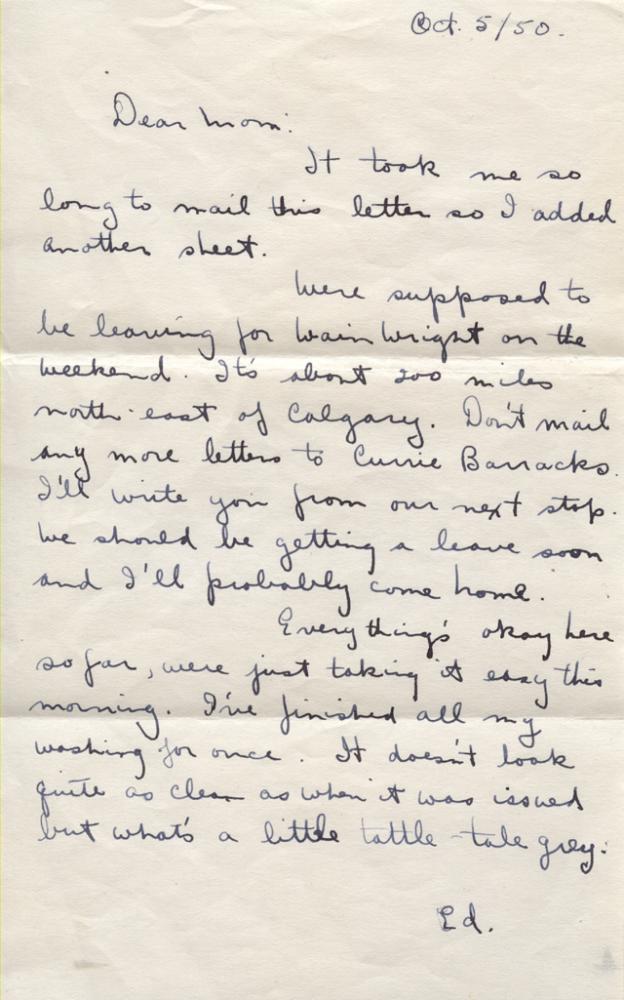 Oct. 5/50.
Dear Mom:
It took me so
long to mail this letter so I added
another sheet.
Were supposed to
be leaving for Wainwright on the
weekend. It's about 200 miles
north-east of Calgary. Don't mail
any more letters to Currie Barracks.
I'll write you from our next stop.
We should be getting a leave soon
and I'll probably come home.
Everything's okay here
so far, were just taking it easy this
morning. I've finished all my
washing for once. It doesn't look
quite as clean as when it was issued
but what's a little tattle-tale grey.
Ed.